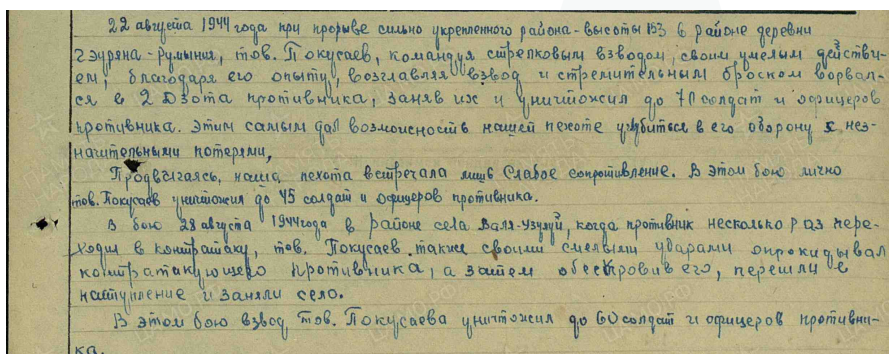 22 августа 1944 года при прорыве сильно укрепленного района-высоты 153 в районе деревни
Гэуряна-Румыния, тов. Покусаев, командуя стрелковым взводом, своим умелым действи-
ем, благодаря его опыту, возглавляя взвод и стремительным броском ворвал-
ся в 2 Дзота противника, заняв их и уничтожил до 70 солдат и офицеров
противника. Этим самым дал возможность нашей пехоте углубиться в его оборону с нез-
начительными потерями,
Продвигаясь, наша пехота встречала лишь слабое сопротивление. В этом бою лично
тов. Покусаев уничтожил до 45 солдат и офицеров противника.
В бою 28 августа 1944 года в районе села Валя-Узулуй, когда противник несколько раз пере-
ходил в контратаку, тов. Покусаев также своими смелыми ударами опрокидывал
контратакующего противника, а затем обескровив его, перешли в
наступление и заняли село.
В этом бою взвод тов. Покусаева уничтожил до 60 солдат и офицеров противни-
ка.